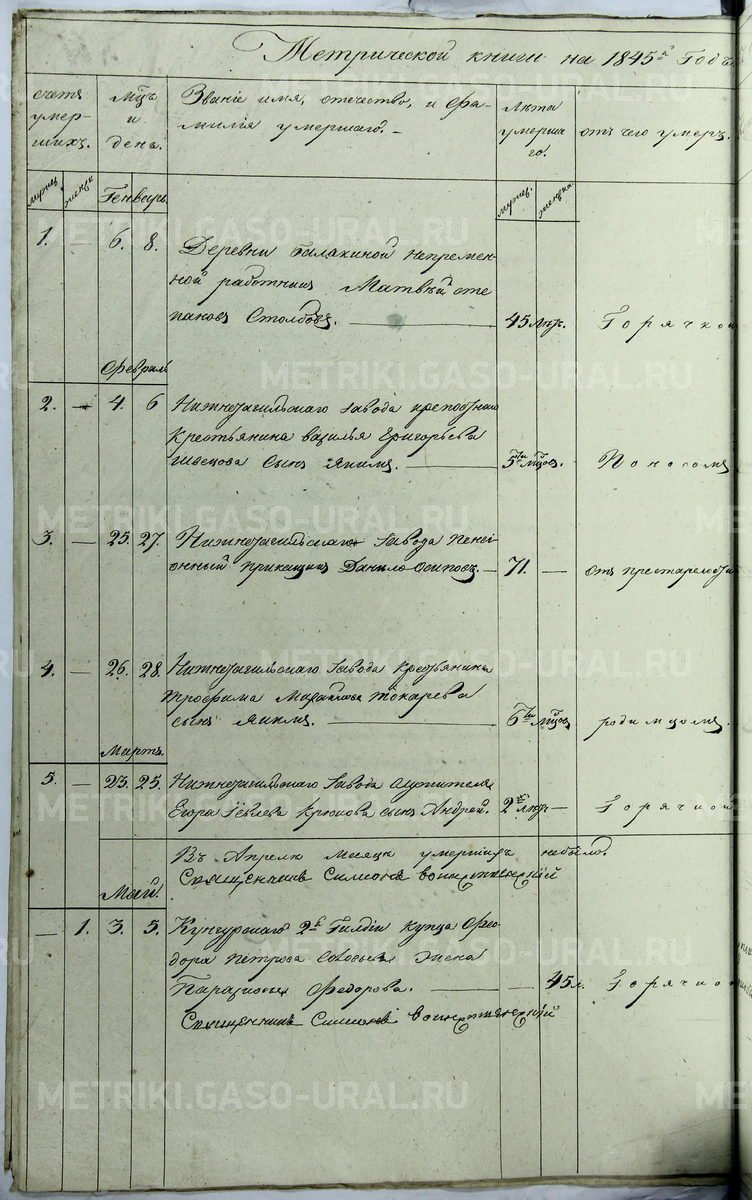 Метрической книги на 1845й Годъ
счетъ умер- шихъ.
Мцъ и день.
Званіе имя, отечество, и фа- милія умершаго.
Лѣта умерша- го.
отъ чего умеръ.
мужес. женска
Генварь
мужес. женска.
1. — 6. 8. Деревни Галакиной непремен-
ной работникъ Матвѣй Сте
пановъ Столбовъ. 45 лѣт. Горячкой
Февраль
2. — 4. 6 Нижнетагильскаго завода крепостнаго
Крестьянина Василья Григорьева
Швецова сынъ Якимъ. 5ти мцовъ. Поносомъ
3. — 25. 27. Нижнетагильскаго завода Пенсі
онный прикащикъ Данило Осиповъ. — 71. — отъ престарелости
4. — 26. 28. Нижнетагильскаго завода Крестьянина
Трофима Токарева
сынъ Якимъ. 6ти мцовъ родимцомъ.
Мартъ.
5. — 23. 25. Нижнетагильскаго завода Служителя
Егора Крюкова сынъ Андрей. 2хъ лѣт. — Горячкой
Въ Апреле месяце умершихъ небыло.
Священникъ Симеонъ
Май.
— 1. 3. 5. Кунгурскаго 2й Гилдіи купца Фео-
дора Петрова жена
Парасковья Федорова. — — 45 л. Горячкой
Священникъ Симеонъ
METRIKI.GASO-URAL.RU